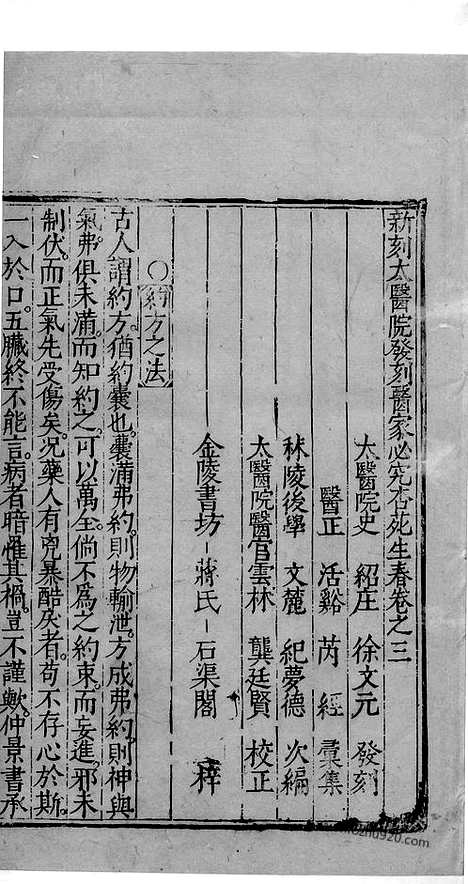 新刻太醫院發刻醫家必究杏苑生春卷之三
太醫院史 紹庄 徐文元 發刻
醫正 活谿 芮 經 彙集
秣陵後學 文麓 紀夢德 次編
太醫院醫官雲林 龔廷賢 校正
金陵書坊 蔣氏 石渠閣 梓
○約方之法
古人謂約方。猶約囊也。囊滿弗約。則物輸泄。方成弗約。則神與
氣弗俱。未滿。而知約之。可以萬全。倘不為之約束。而妄進。邪未
制伏。而正氣先受傷矣。况藥人有兇暴酷戾者。苟不存心於斯。
一入於口。五臟終不能言。病者暗罹其禍。豈不謹歟。仲景書承